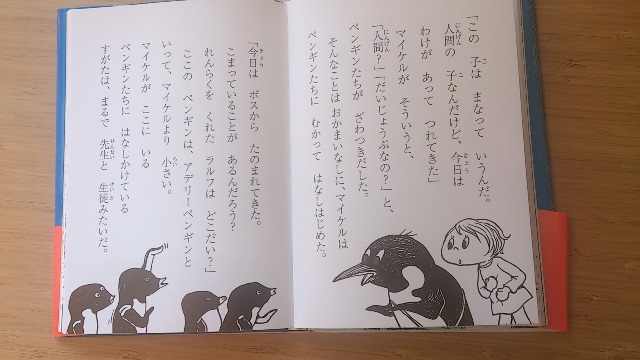 「この 子は まなって いうんだ。
人間の 子なんだけど、今日は
わけが あって つれてきた」
マイケルが そういうと、
「人間？」「だいじょうぶなの？」と、
ペンギンたちが ざわつきだした。
そんなことは おかまいなしに、マイケルは
ペンギンたちに むかって はなしはじめた。
「今日は ボスから たのまれてきた。
こまっていることが あるんだろう？
れんらくを くれた ラルフは どこだい？」
ここの ペンギンは、アデリーペンギンと
いって、マイケルより 小さい。
マイケルが ここに いる
ペンギンたちに はなしかけている
すがたは、まるで 先生と 生徒みたいだ。